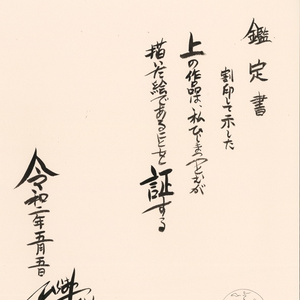 鑑定書
割印して示した
上の作品は、私ひさつとむが
描いた絵であることを
証する
令和二年五月五日